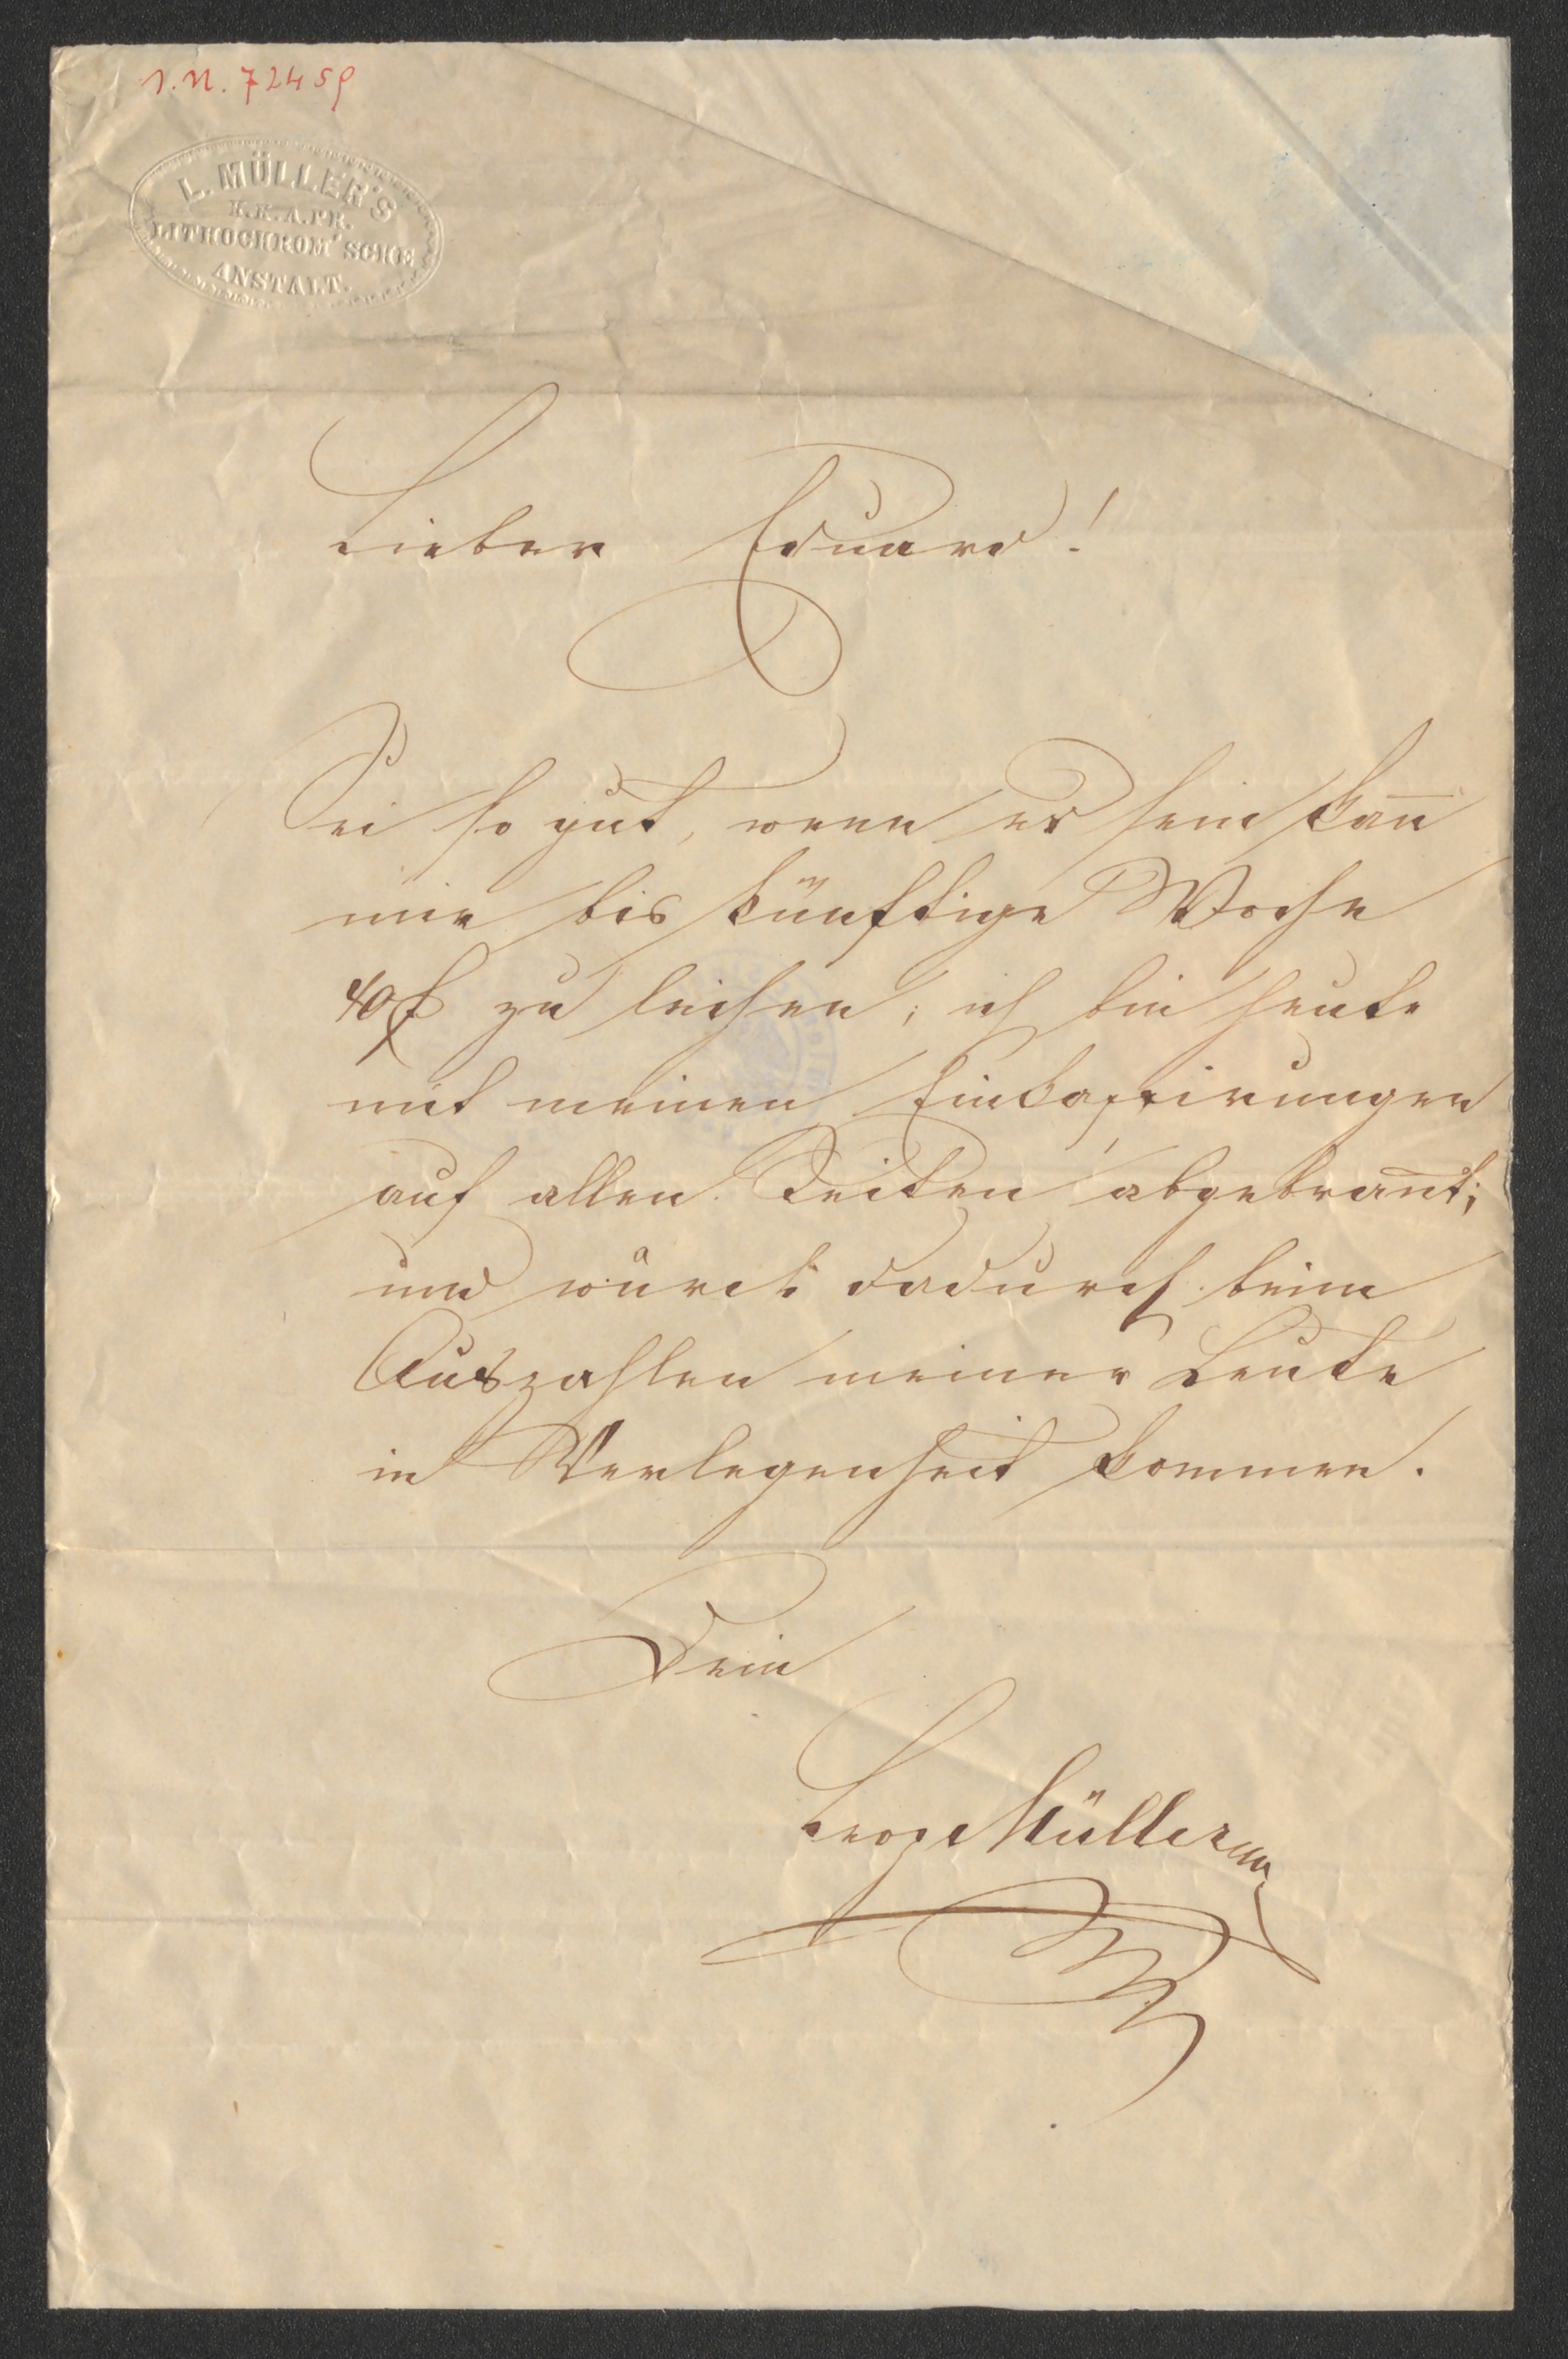 I.N. 72459
L. MÜLLER'S
K.K.A.PR.
LITHOCHROM'SCHE
ANSTALT.
Lieber Eduard!
Sei so gut, wenn es sein kan̄
mir bis künftige Woche
40 f zu leihen; ich bin heute
mit meinen Einkassirungen
auf allen Seiten abgebran̄t;
und würde dadurch beim
Auszahlen meiner Leute
in Verlegenheit kommen.
Dein
Leop Müller